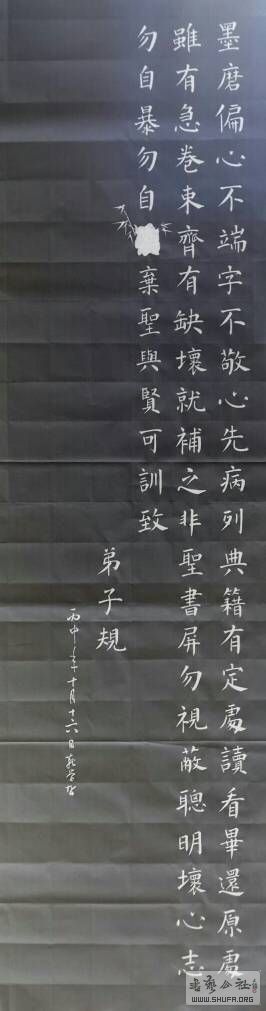 墨磨偏心不端字不敬心先病列典籍有定處讀看畢還原處
雖有急卷束齊有缺壞就補之非聖書屏勿視蔽聰明壞心志
勿自暴勿自棄聖與賢可訓致
弟子規
丙申年十月十六日
WWW.SHUFA.ORG